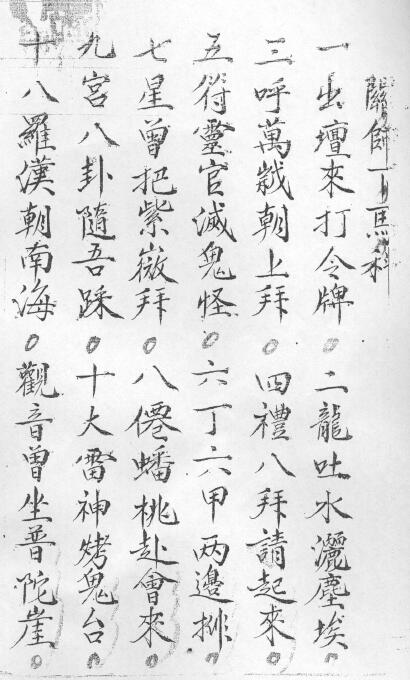 關師下馬杉
一出壇來打令牌。二龍吐水灑塵埃。
三呼萬戢朝上拜。四禮八拜請起來。
五符靈官滅鬼怪。六丁六甲两邊排。
七星曾把紫薇拜。八僊蟠桃赴會來。
九宮八卦隨吾踩。十大雷神烤鬼台。
十八羅漢朝南海。觀音曾坐普陀崖。